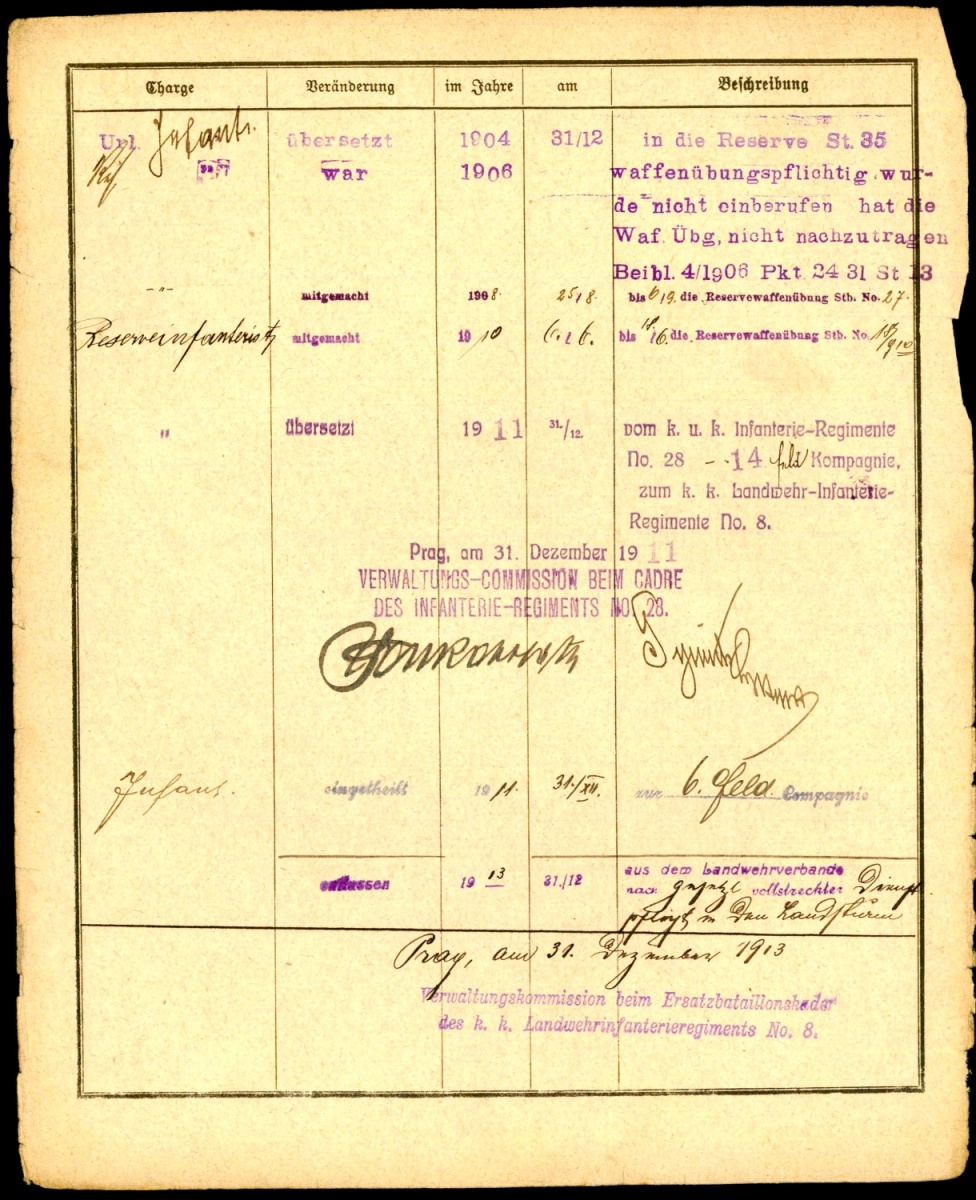 Charge Veränderung im Jahre am Beschreibung
Url. Infant. übersetzt 1904 31/12 in die Reserve St. 35
war 1906 waffenübungspflichtig wur-
de nicht einberufen hat die
Waf. Übg, nicht nachzutragen
Beibl. 4/1906 Pkt 24 31 St 13
-"- mitgemacht 1908. 25/8. bis 6/9. die Reservewaffenübung Stb. No. 27.
Reserveinfanterist mitgemacht 1910 6./6. bis 18./6. die Reservewaffenübung Stb. No.
" übersetzt 1911 31./12. vom k. u. k. Infanterie-Regimente
No. 28 - 14 feld Kompagnie,
zum k. k. Landwehr-Infanterie-
Regimente No. 8.
Prag, am 31. Dezember 1911
VERWALTUNGS-COMMISSION BEIM CADRE
DES INFANTERIE-REGIMENTS NO. 28.
Infant. eingetheilt 1911. 31./XII. zur 6. Feld. Compagnie
entlassen 1913 31./12 aus dem Landwehrverbande
nach gesetzl vollstreckter Dienst
pflicht in den Landsturm
Prag, am 31. Dezember 1913
Verwaltungskommission beim Ersatzbataillonskader
des k. k. Landwehrinfanterieregiments No. 8.